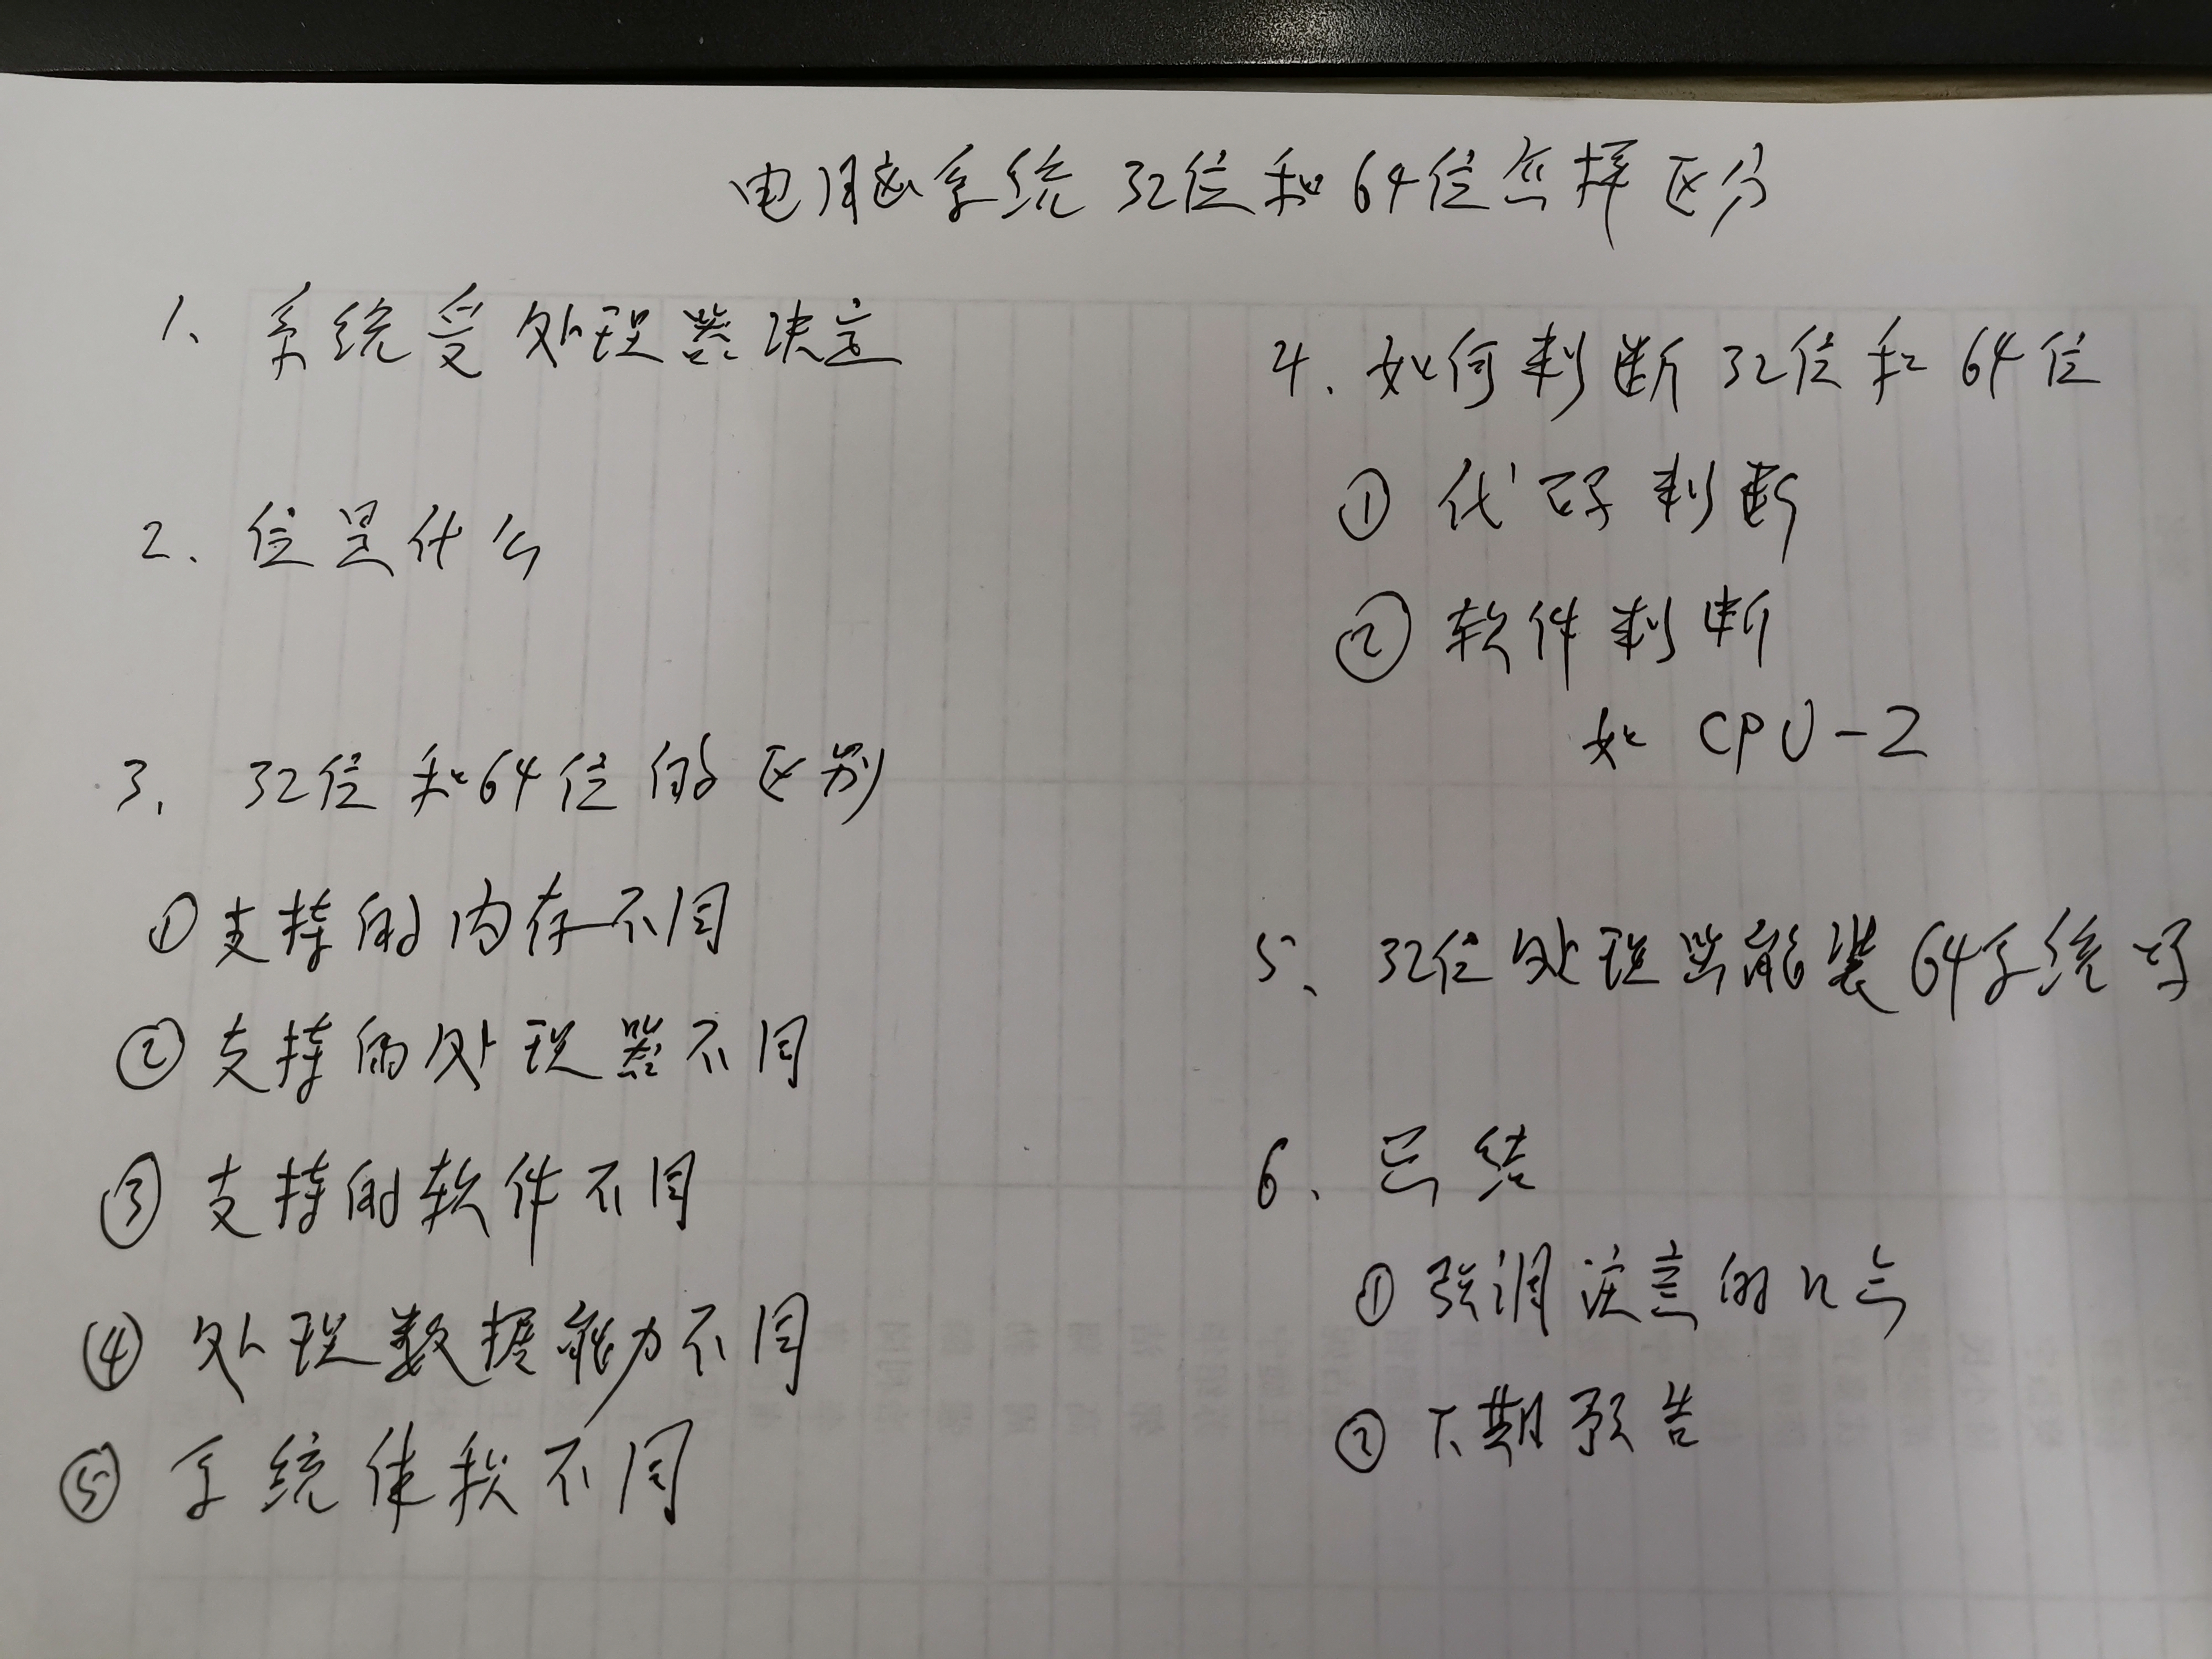 电脑系统32位和64位怎样区分
1、系统受处理器决定
2、位是什么
3、32位和64位的区别
①支持的内存不同
②支持的处理器不同
③支持的软件不同
④处理数据能力不同
⑤系统体积不同
4、如何判断32位和64位
①代码判断
②软件判断
如CPU-Z
5、32位处理器能装64系统吗
6、总结
①强调注意的几点
②下期预告